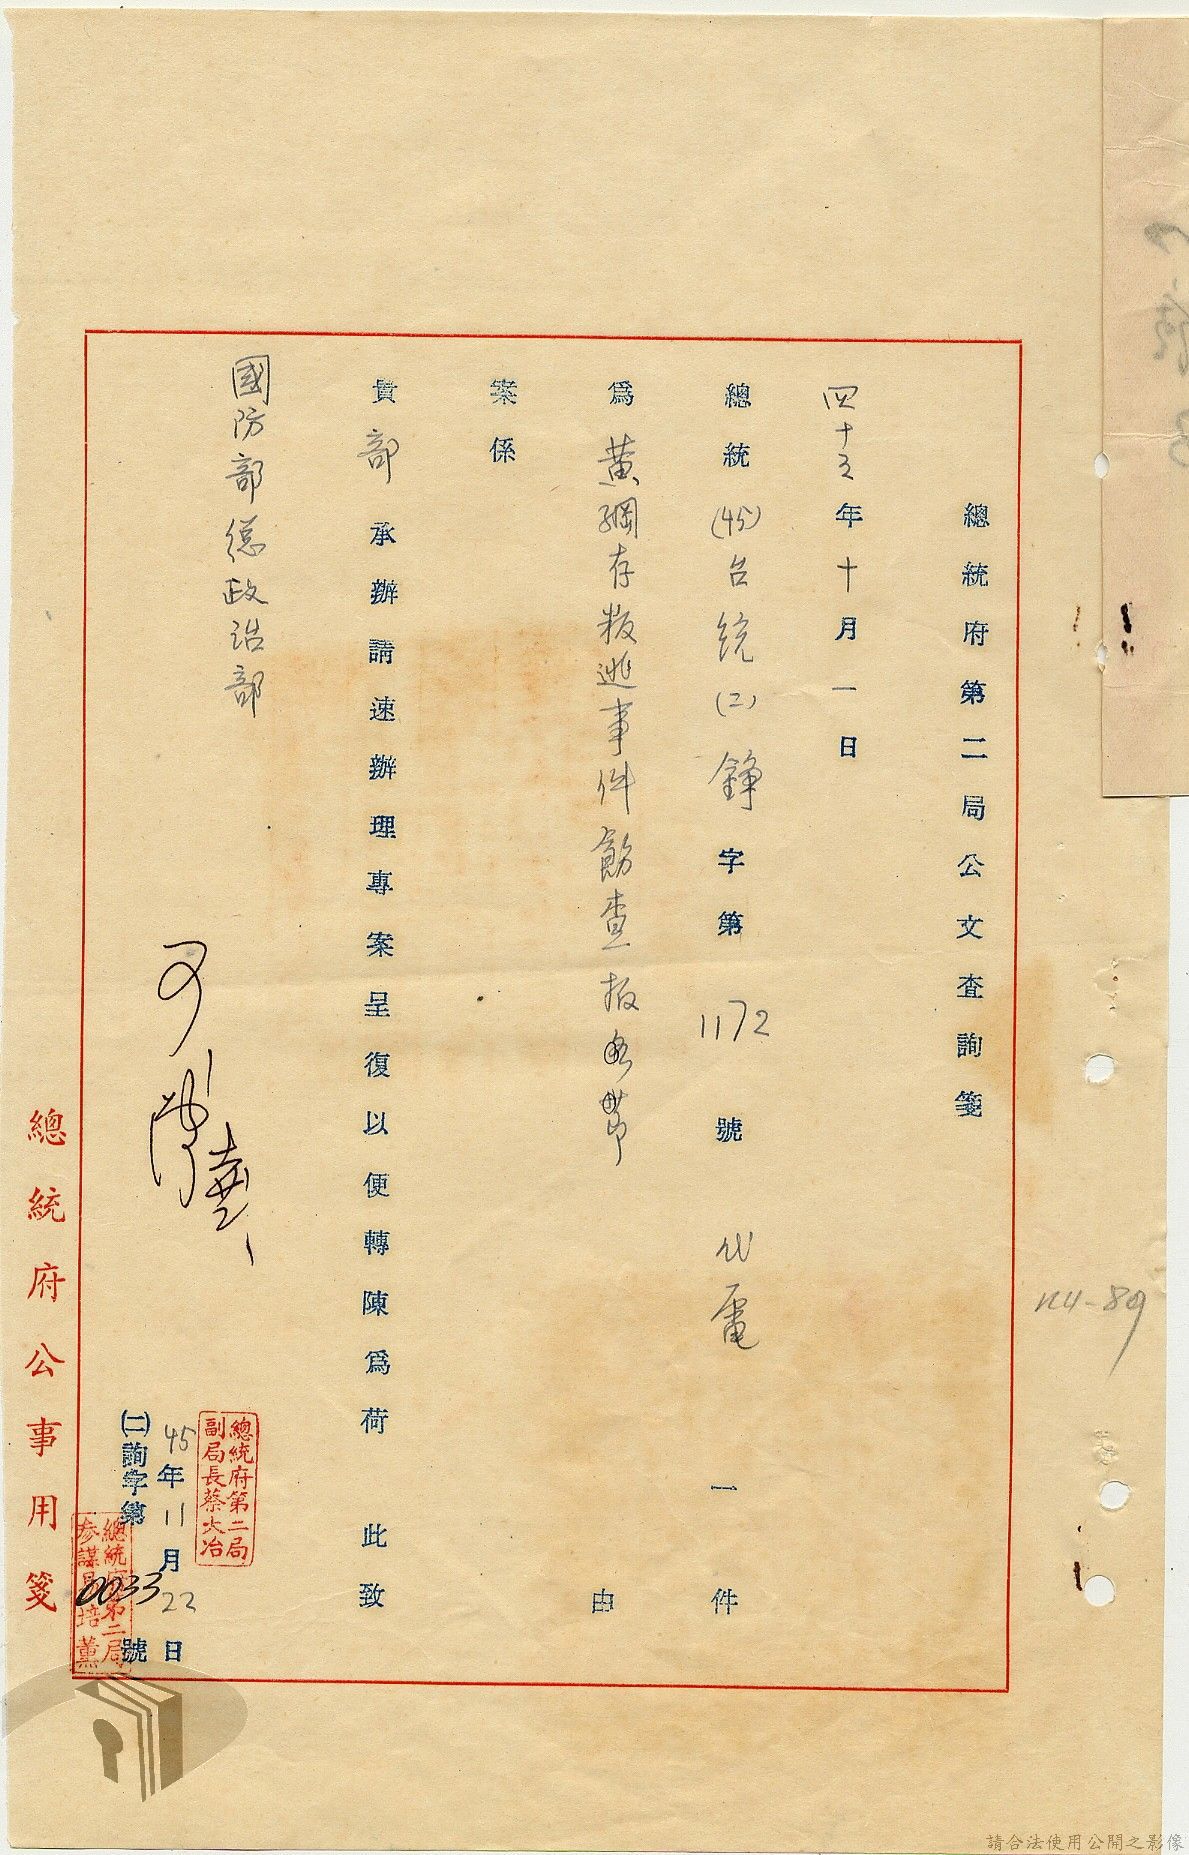 總統府第二局公文查詢箋
四十五年十月一日
總統(45)台統(2)錚字第1172號代電一件
為黃綱存叛逃事件飭查報各節由
案係
貴部承辦請速辦理專案呈復以便轉陳為荷此致
國防部總政治部
總統府第二局
副局長蔡大冶
45年11月22日
㈡詢字第0033號
總統府第二局
總統府公事用箋
n4-89
請合法使用公開之影像